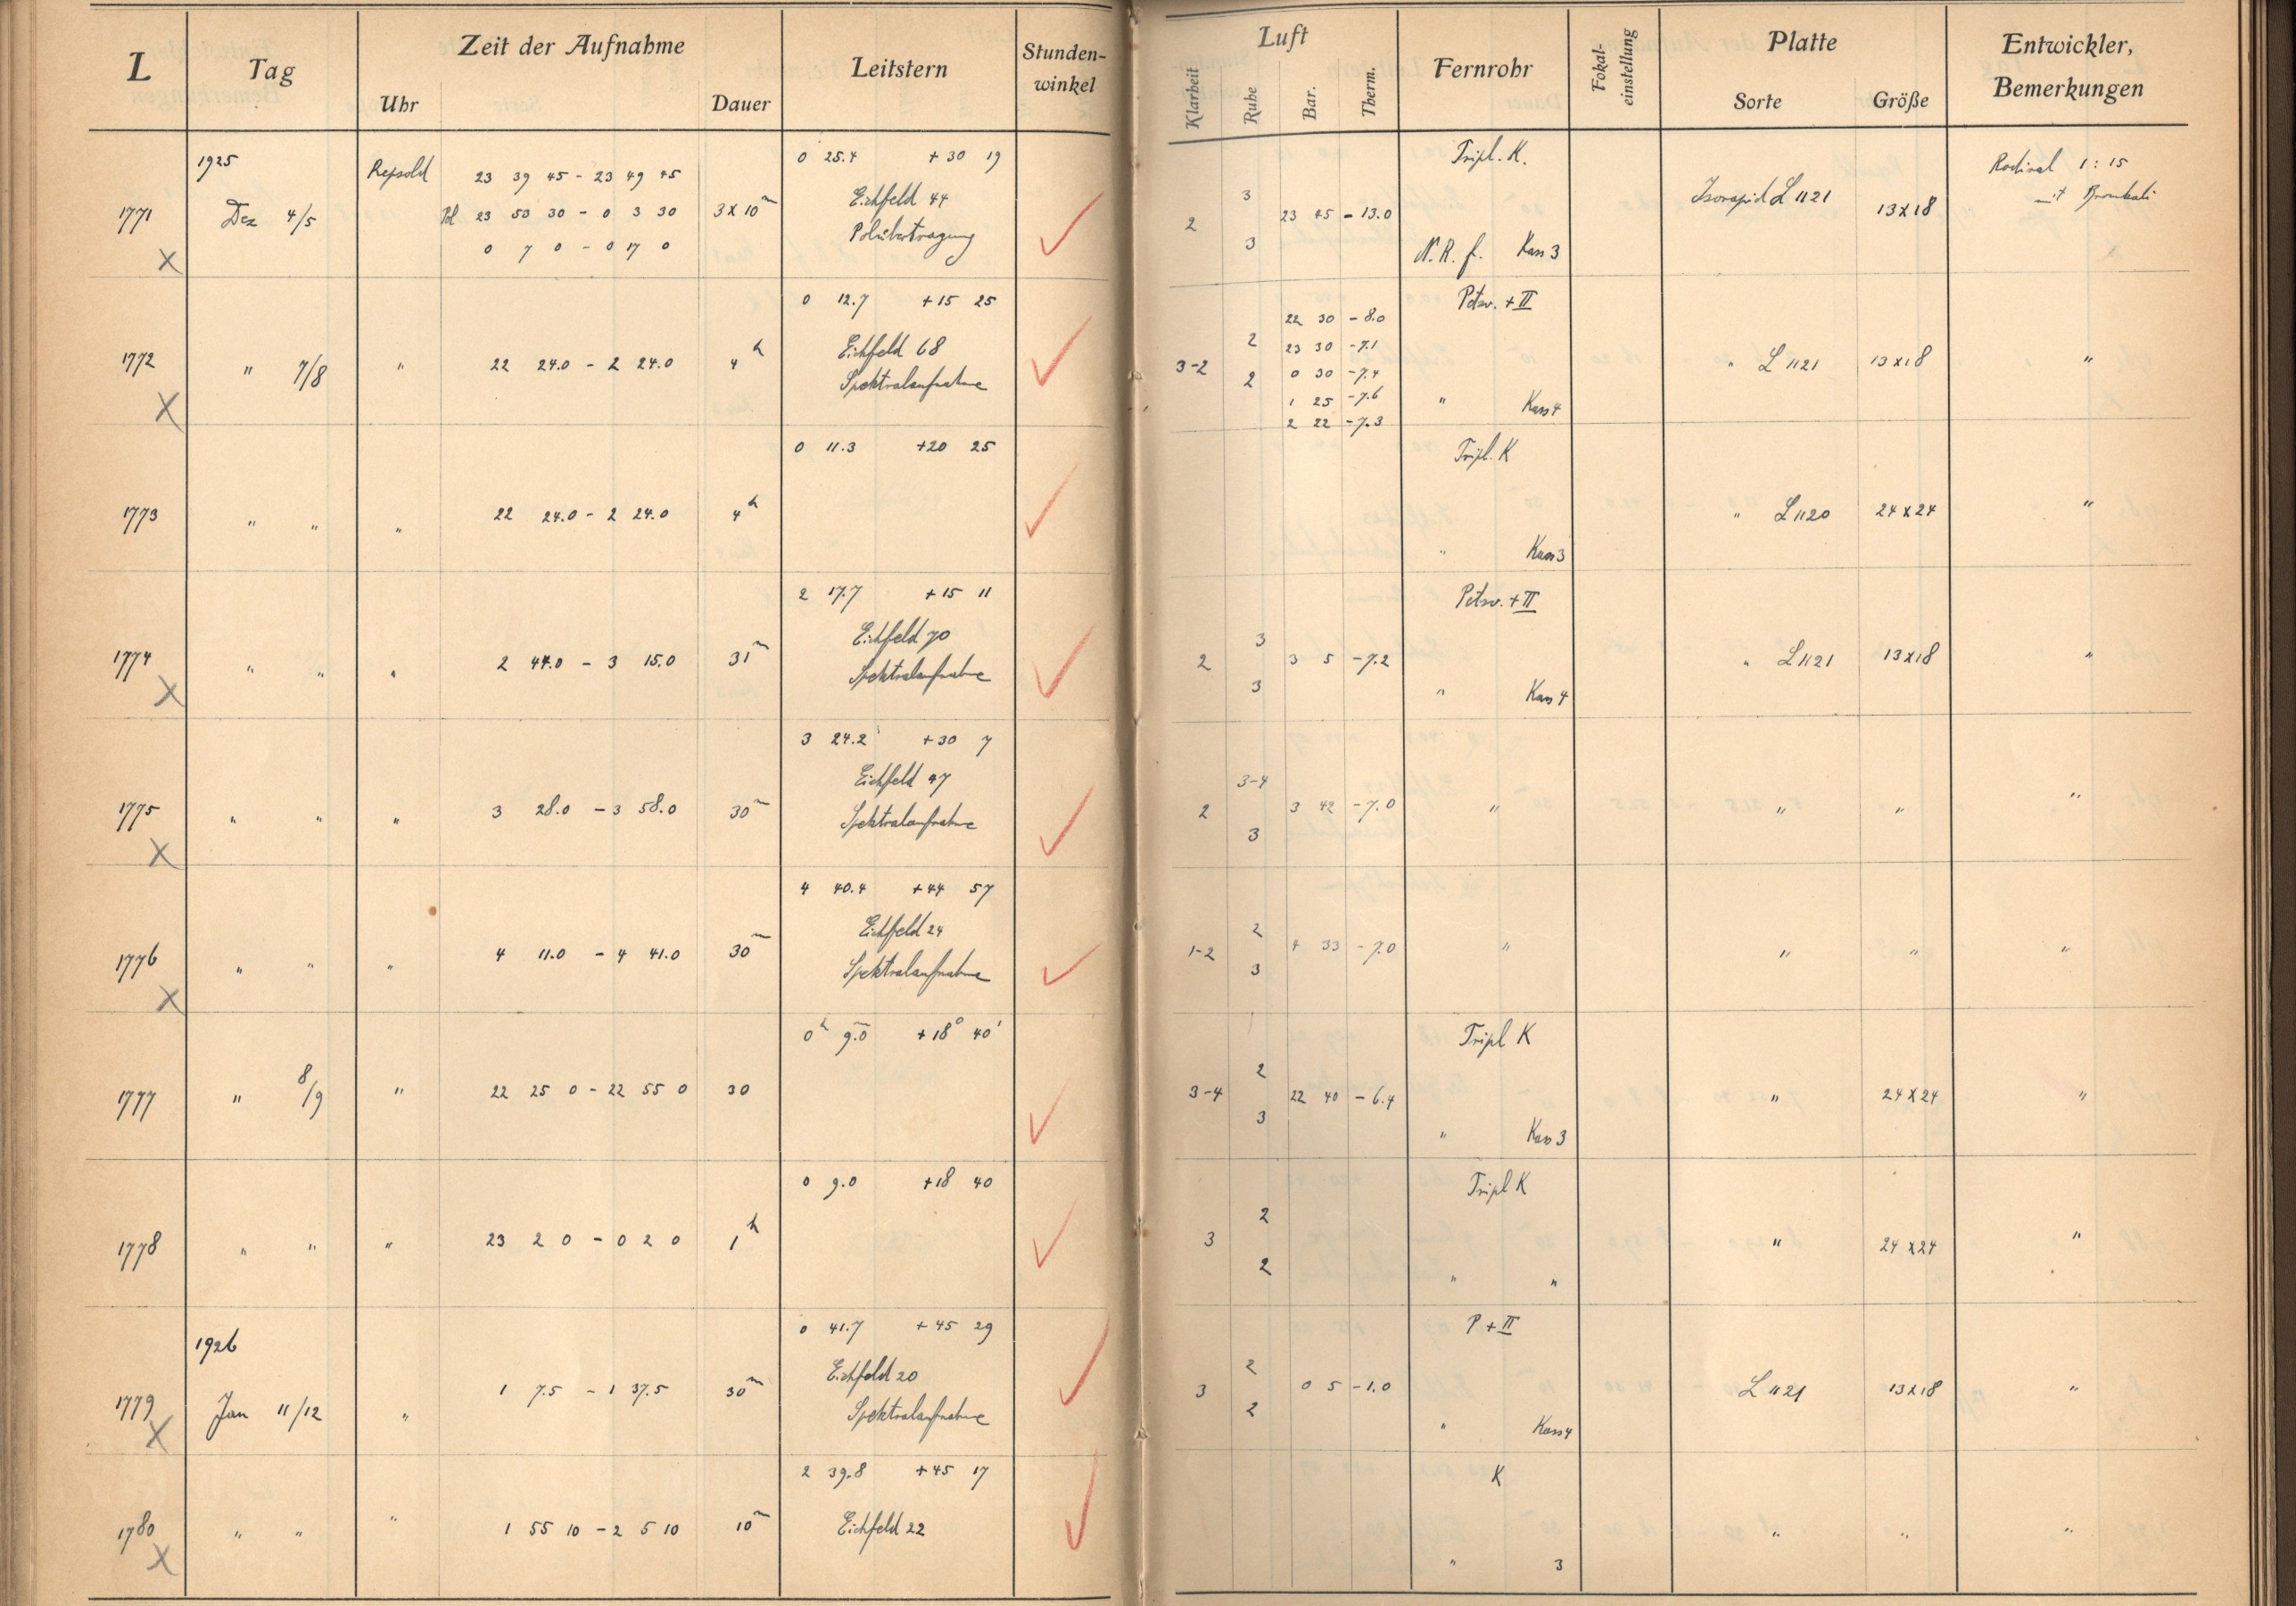 L Tag Zeit der Aufnahme Leitstern Stunden-winkel Luft Fernrohr Fokal-einstellung Platte Entwickler, Bemerkungen
Uhr Dauer Klarheit Ruhe Bar. Therm. Sorte Größe
1925 Repsold 23 39 45 - 23 49 45 0 25.4 +30 19 Tripl. K. Rodinal 1:15
1771 Dez 4/5 Pol 23 53 30 - 0 3 30 3x10m Eichfeld 44 2 3 23 45 -13.0 Isorapid L 1121 13x18 mit Bromkali
X 0 7 0 - 0 17 0 Polübertragung 3 N.R.f. Kass 3
0 12.7 +15 25 Petzv. + II
22 30 -8.0
1772 " 7/8 " 22 24.0 - 2 24.0 4h Eichfeld 68 3-2 2 23 30 -7.1 " L 1121 13x18 "
X Spektralaufnahme 2 0 30 -7.4
1 25 -7.6 " Kass 4
2 22 -7.3
0 11.3 +20 25 Tripl. K
1773 " " " 22 24.0 - 2 24.0 4h " L 1120 24x24 "
" Kass 3
2 17.7 +15 11 Petzv. + II
1774 " " " 2 44.0 - 3 15.0 31m Eichfeld 70 2 3 3 5 -7.2 " L 1121 13x18 "
X Spektralaufnahme 3 " Kass 4
3 24.2 +30 7
Eichfeld 47 3-4
1775 " " " 3 28.0 - 3 58.0 30m Spektralaufnahme 2 3 42 -7.0 " " " "
X 3
4 40.4 +44 57
Eichfeld 24 2
1776 " " " 4 11.0 - 4 41.0 30m Spektralaufnahme 1-2 4 33 -7.0 " " " "
X 3
0h 9.0m +18° 40' Tripl K
2
1777 " 8/9 " 22 25 0 - 22 55 0 30 3-4 22 40 -6.4 " 24x24 "
3 " Kass 3
0 9.0 +18 40 Tripl K
2
1778 " " " 23 2 0 - 0 2 0 1h 3 " 24x24 "
2 " "
1926 0 41.7 +45 29 P + II
Eichfeld 20 2
1779 Jan 11/12 " 1 7.5 - 1 37.5 30m Spektralaufnahme 3 0 5 -1.0 L 1121 13x18 "
X 2 " Kass 4
2 39.8 +45 17 K
1780 " " " 1 55 10 - 2 5 10 10m Eichfeld 22 " " "
X " 3